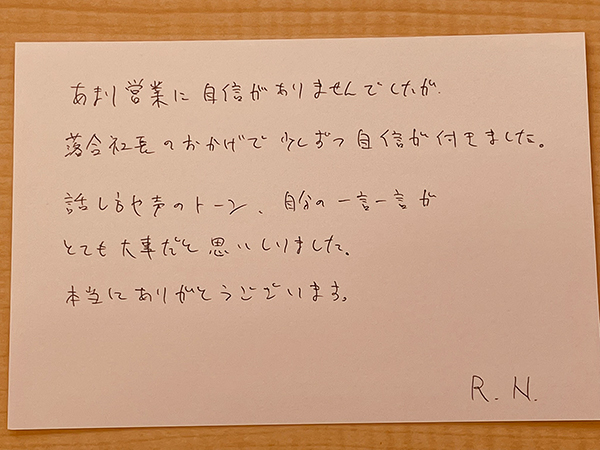 あまり営業に自信がありませんでしたが
落合社長のおかげで少しずつ自信が付きました。
話し方や声のトーン、自分の一言一言が
とても大事だと思いしりました。
本当にありがとうございます。
R. N.